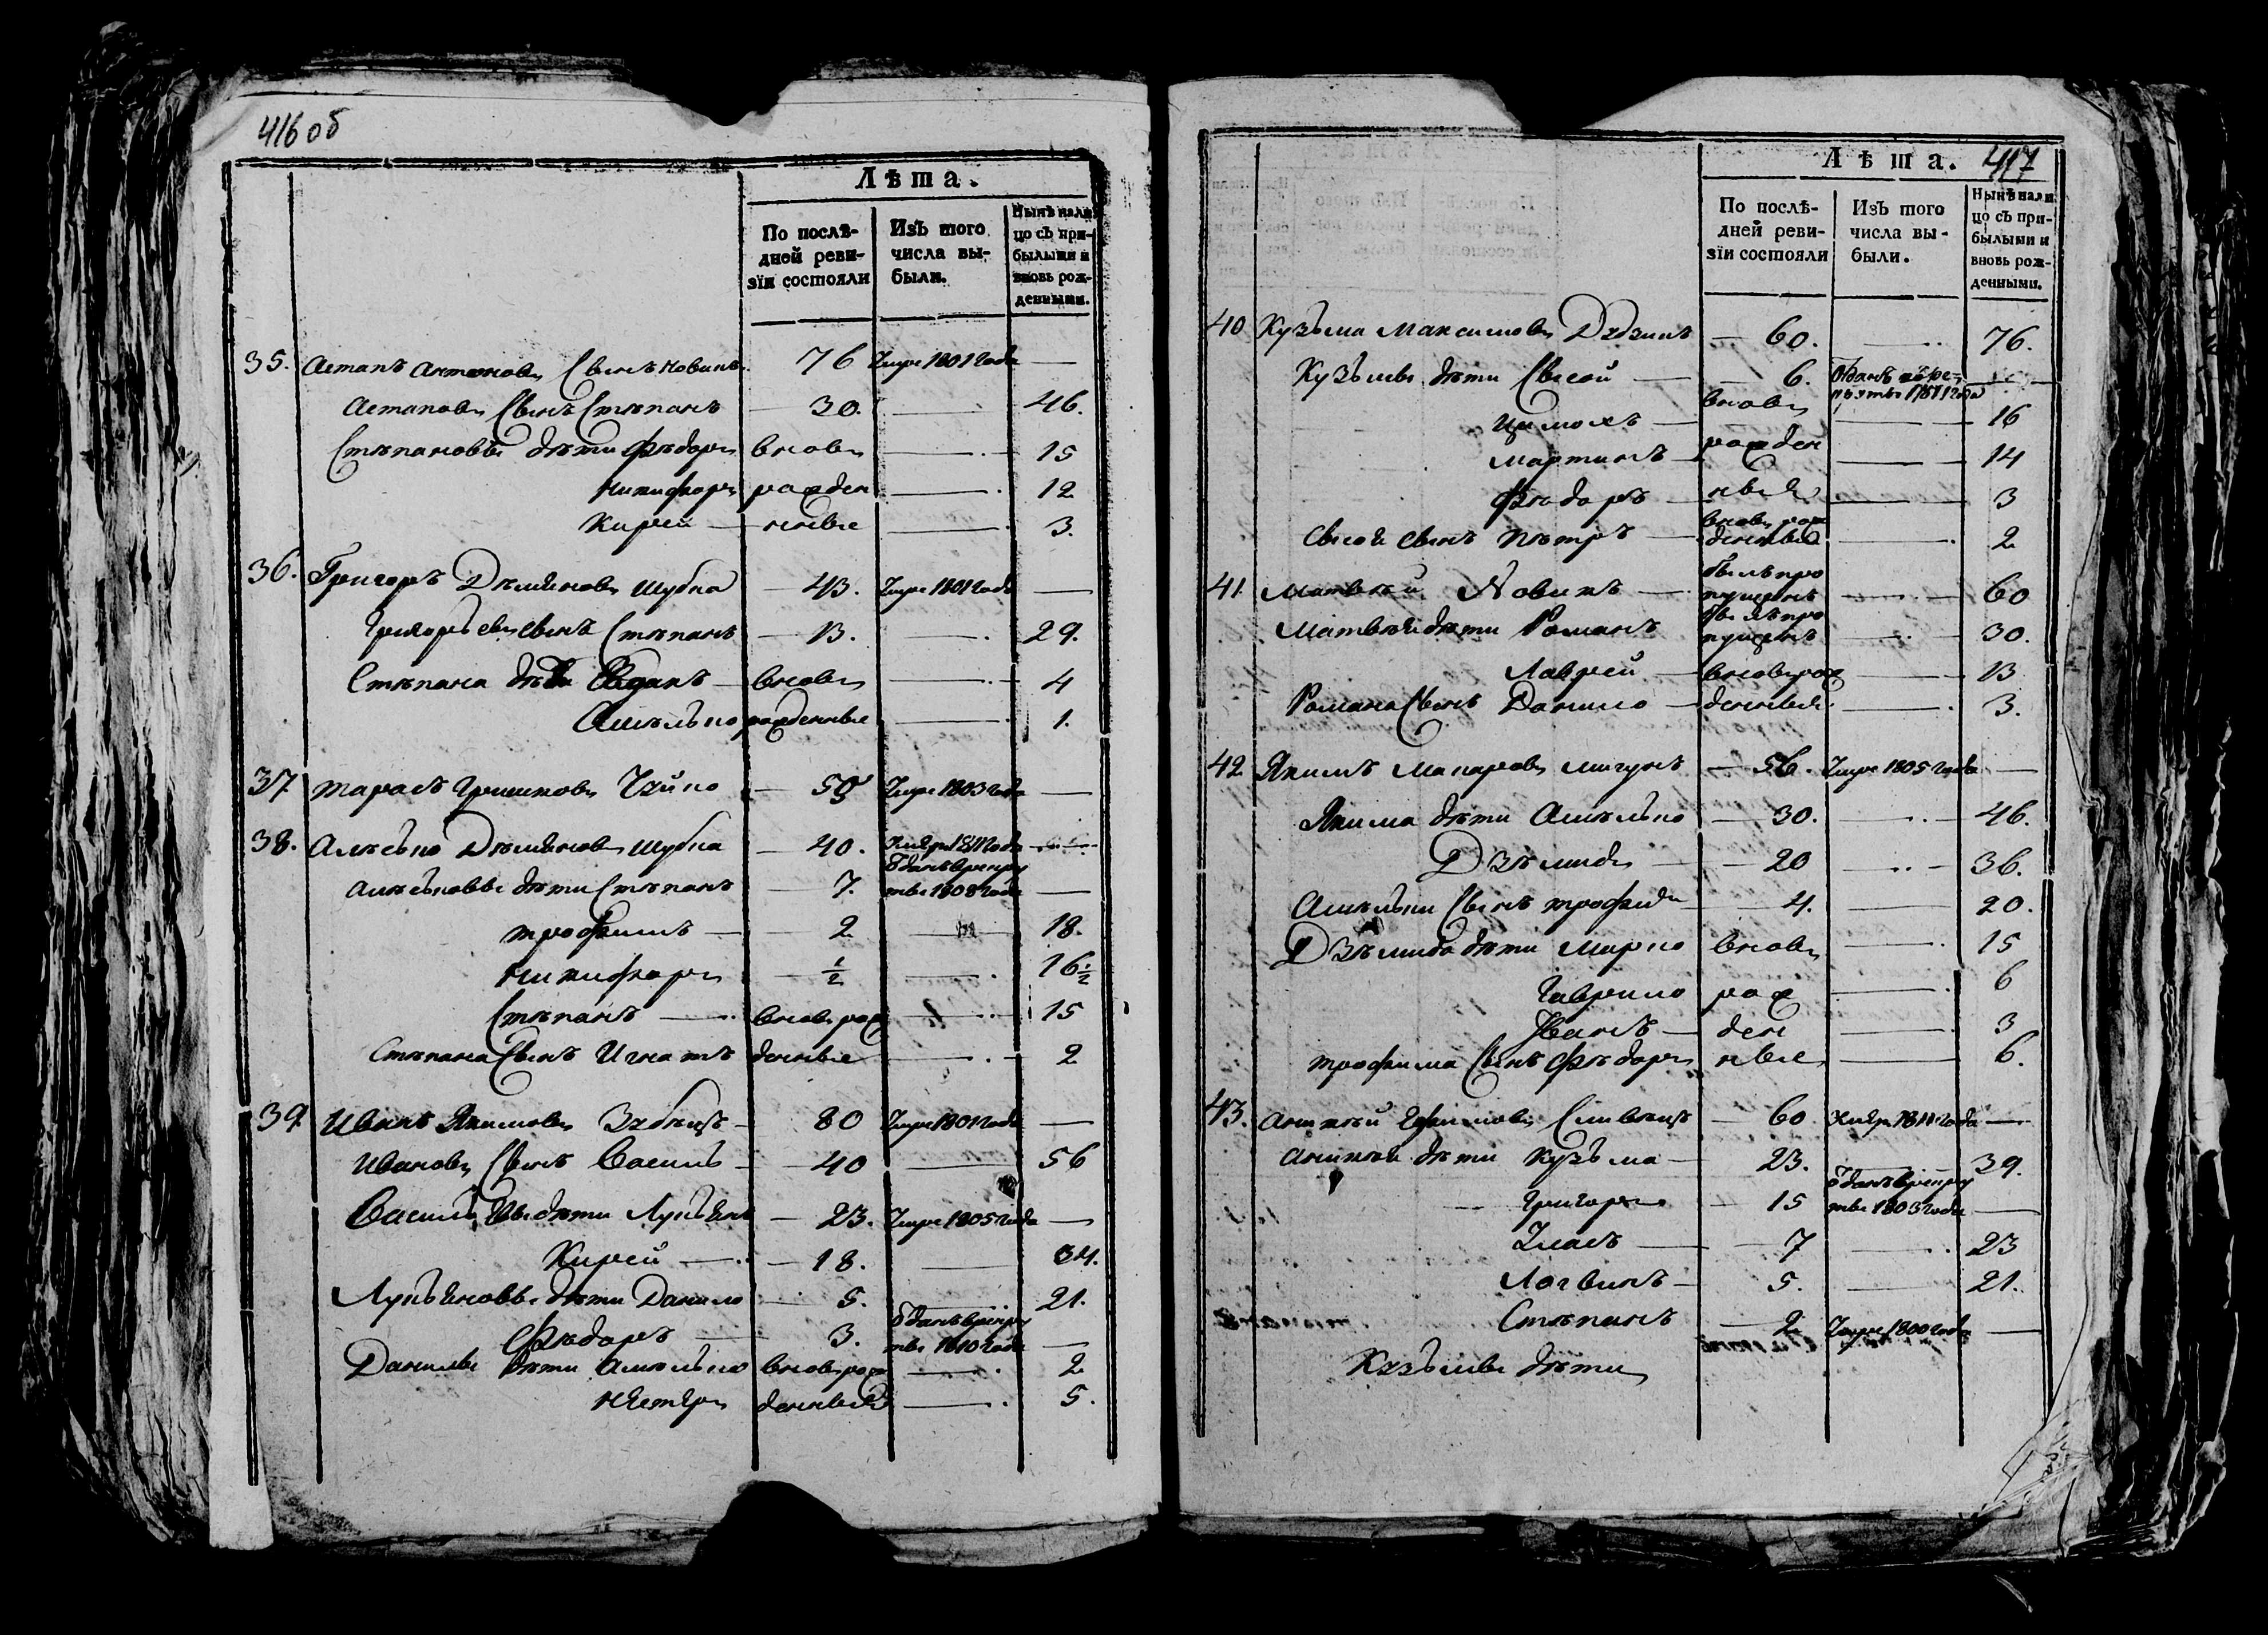 416 об
Лѣта.
По послѣ-
дней реви-
зїи состояли
Изъ того
числа вы-
были.
Нынѣ нали
цо съ при-
былыми и
вновь рож-
денными.
35. Астапъ Антоновъ Сынъ Новикъ. 76 Умре 1801 года —
Астаповъ Сынъ Стѣпанъ — 30. — 46.
Стѣпановы дѣти Фѣдоръ вновь — 15
Никифоръ рожден — 12
Кирей — ные — 3.
36. Григоръ Дѣмяновъ Шубка — 43. Умре 1801 года —
Григорьевъ Сынъ Стѣпанъ — 13. — 29.
Стѣпана дѣти — вновь — 4
Амѣлько рожденные — 1.
37. Тарасъ Гришковъ Чуйко — 59 Умре 1803 года —
38. Алѣсько Дѣмяновъ Шубка — 40. 1811 года —
Алѣськовы дѣти Стѣпанъ — 7. Отданъ врекру
ты 1808 года —
трофимъ — 2 — 18.
Никифоръ — 1/2 — 16 1/2
Стѣпанъ — вновь рож — 15
Стѣпана Сынъ Игнатъ денные — 2
39. Иванъ Якимовъ — 80 Умре 1801 года —
Ивановъ Сынъ Василь — 40 — 56
Василь дѣти Лукьянъ — 23. Умре 1805 года —
Кирей — 18. — 34.
Лукьяновы дѣти Данило — 5. — 21.
Фѣдоръ — 3. Отданъ врекру
ты 1810 года —
Данилы дѣти Амелько вновь рож — 2
Нестеръ денные — 5.
Лѣта. 417
По послѣ-
дней реви-
зїи состояли
Изъ того
числа вы-
были.
Нынѣ нали
цо съ при-
былыми и
вновь рож-
денными.
40 Кузьма Максимовъ — 60. — 76.
Кузьмы дѣти — 6. Отданъ
вновь — 16
Мартинъ — рожден — 14
Фѣдоръ — ныя — 3
Сынъ Пѣтръ — вновь рож
денные — 2
41. Матвѣй Новикъ — былъ про
пущенъ — 60
Матвѣя дѣти Романъ былъ про
пущенъ — 30.
Лаврей — вновь рож — 13
Романа Сынъ Данило — денныя — 3.
42. Якимъ Макаровъ Мигунъ — 56. Умре 1805 года —
Якима дѣти Амѣлько — 30. — 46.
Дзѣмидъ — 20 — 36.
Амѣльки Сынъ трофимъ — 4. — 20.
Дзѣмида дѣти Мирко вновь — 15
Гаврило рож — 6
Иванъ — ден — 3
трофима Сынъ Фѣдоръ ные — 6.
43. Аникѣй Ефимовъ — 60 1811 года —
Аникѣя дѣти Кузьма — 23. — 39.
Григоръ — 15 Отданъ врекру
ты 1803 года —
Уласъ — 7 — 23
Логвинъ — 5. — 21.
Стѣпанъ — 2 Умре 1800 года —
Кузьмы дѣти